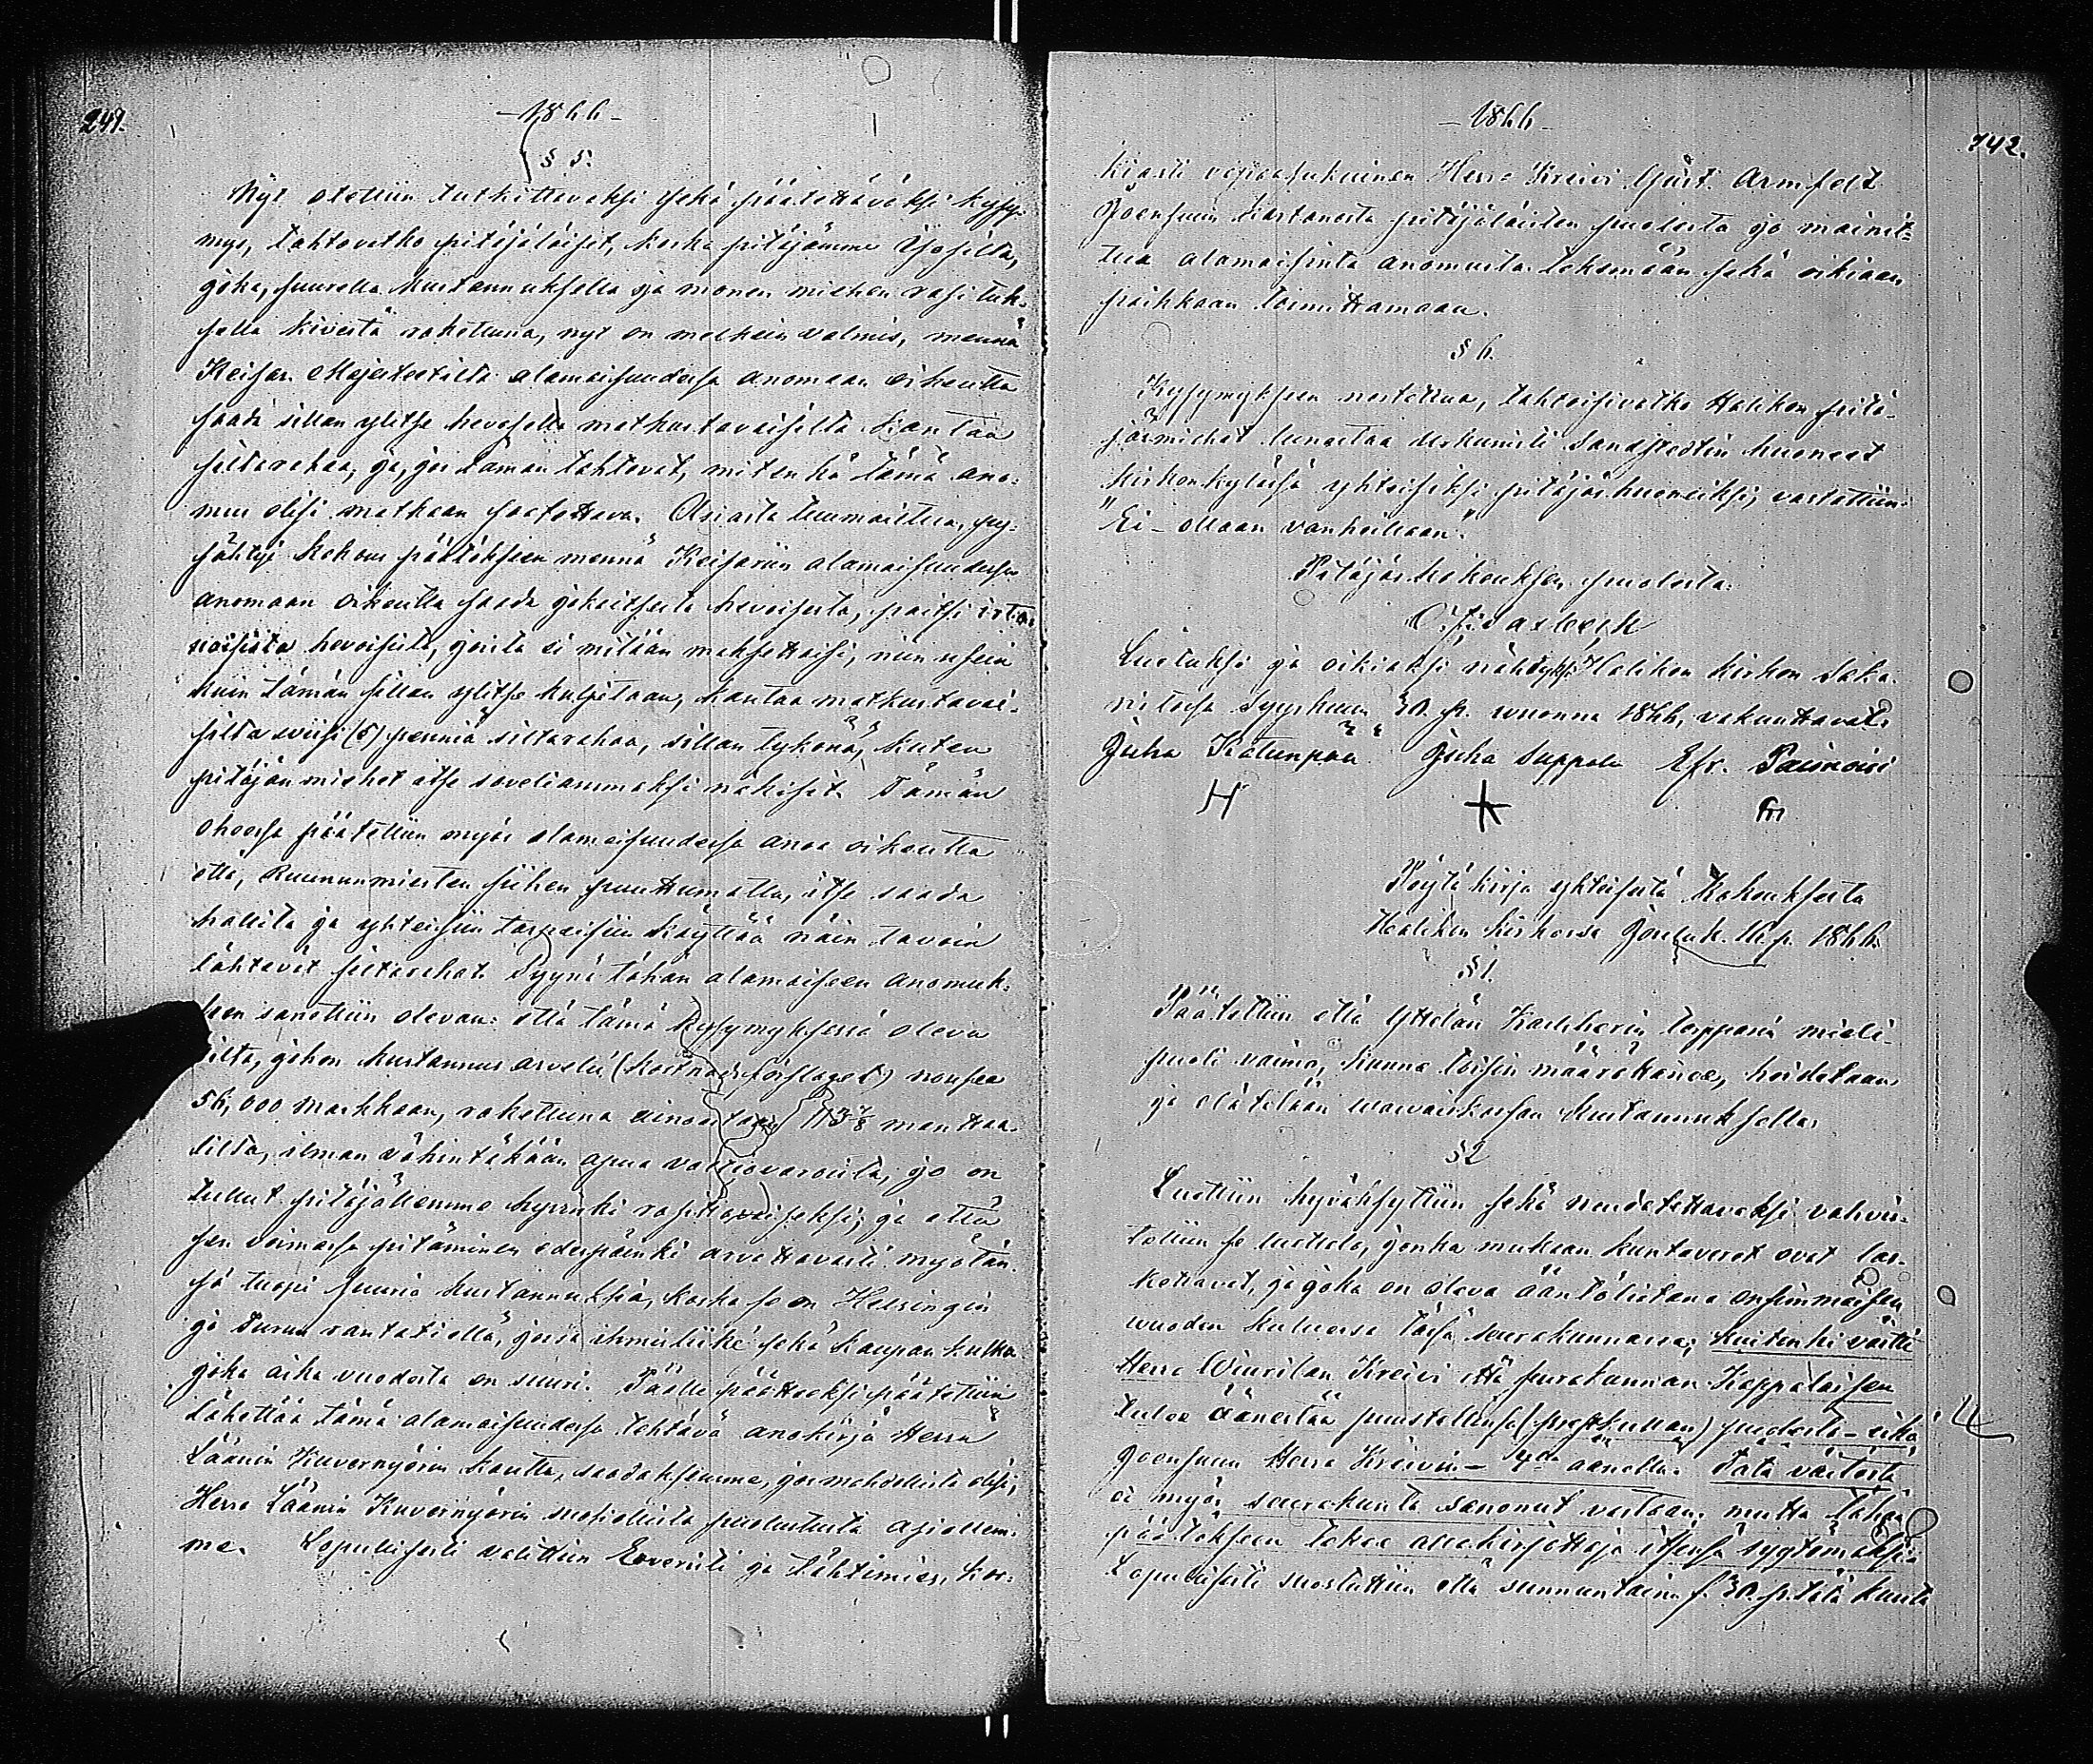 241.
-1866-
§ 5.
Nyt otettiin tutkittavaksi sekä päätettäväksi kysy-
mys, tahtovatko pitäjäläiset, koska pitäjämme Yösilta,
joka, suurella kustannuksella ja monen miehen rasituk-
sella kivestä rakettuna, nyt on melkein valmis, mennä
Keisar. Majesteetilta alamaisuudessa anomaan oikeutta
saada sillan ylitse hevosella matkustavaisilta kantaa
siltarahaa, ja, jos tämän tahtovat, mitenkä tämä ano-
mus olisi matkaan saatettava. Asiasta tuumailtua, py-
sähtyi kokous päätökseen mennä Keisariin alamaisuudessa
anomaan oikeutta saada jokaitsesta hevoisesta, paitsi irta-
naisista hevoisista, joista ei mitään maksettaisi, niin usein
kuin tämän sillan ylitse kuljetaan, kantaa matkustavai-
silta wiisi (5) penniä siltarahaa, sillan tykönä, kuten
pitäjän miehet itse soveliammaksi näkisit. Tämän
ohessa päätettiin myös alamaisuudessa anoa oikeutta
että, Ruununmiesten siihen puuttumatta, itse saada
hallita ja yhteisiin tarpeisiin käyttää näin tavoin
lähtevät siltarahat. Syynä tähän alamaiseen anomuk-
seen sanottiin olevan: että tämä kysymyksessä oleva
silta, johon kustannus arvelu (Kostnads förslaget) nousee
56,000 markkaan, rakettuna ainoastaan 113 7/8 manttaa-
lilta, ilman vähintäkään apua valtiovaroista, jo on
tullut pitäjällemme kyllinki rasittavaiseksi; ja että
sen voimassa pitäminen edespäinki arvattavasti myötän-
sä tuopi suuria kustannuksia, koska se on Helsingin
ja Turun rantatiellä, jossa ihmisliike sekä kaupan kulku
joka aika vuodesta on suuri. Päälle päätteeksi päätettiin
lähettää tämä alamaisuudessa tehtävä anokirja Herra
Läänin Kuvernyörin kautta, saadaksemme, jos mahdollista olisi,
Herra Läänin Kuvernyörin suosiollista puolustusta asiallem-
me. Lopullisesti valittiin Eversti ja Tähtimies, kor-
-1866-
742.
kiasti vapaasukuinen Herra Kreivi Ajut. Armfelt
Joensuun kartanosta pitäjäläisten puolesta jo mainit-
tua alamaisinta anomusta tekemään sekä oikiaan
paikkaan toimittamaan.
§ 6.
Kysymykseen nostettua, tahtoisivatko Halikon pitä-
jäsmiehet lunastaa leskimuori Sandstedtin huoneet
kirkonkylässä yhteisiksi pitäjäshuoneiksi, vastattiin:
"Ei - ollaan vanhoillaan".
Pitäjäs kokouksen puolesta:
Luetuksi ja oikiaksi nähdyksi Halikon kirkon saka-
ristossa Syyskuun 30. p. wuonna 1866, vakuuttavat:
Juha Kotunpää Juha Suppala Efr. Paimoisi
H
Pöytäkirja yhteisestä Kokouksesta
Halikon kirkossa Jouluk. 16. p. 1866.
§ 1.
Päätettiin että Yttelän Kaukkerin torpparin mieli-
puoli vaimo, kunne toisin määrätänee, hoidetaan
ja elätetään waivaiskassan kustannuksella.
§ 2
Luettiin hyväksyttiin sekä noudatettavaksi vahvis-
tettiin se luettelo, jonka mukaan kuntaverot ovat las-
kettavat, ja joka on oleva ääntölistana ensimmäisen
wuoden kuluessa tässä seurakunnassa; kuitenki väitti
Herra Wiurilan Kreivi että seurakunnan Kappalaisen
tulee äänestää puustellinsa puolesta - eikä
Joensuun Herra Kreivin - 4llä äänellä. Tätä väitöstä
ei myös seurakunta sanonut vastaan: mutta tähän
päätökseen tekee allekirjoittaja itsensä syytömäksi:
Lopullisesti suostuttiin että sunnuntaina s. 30. p. tätä kuuta